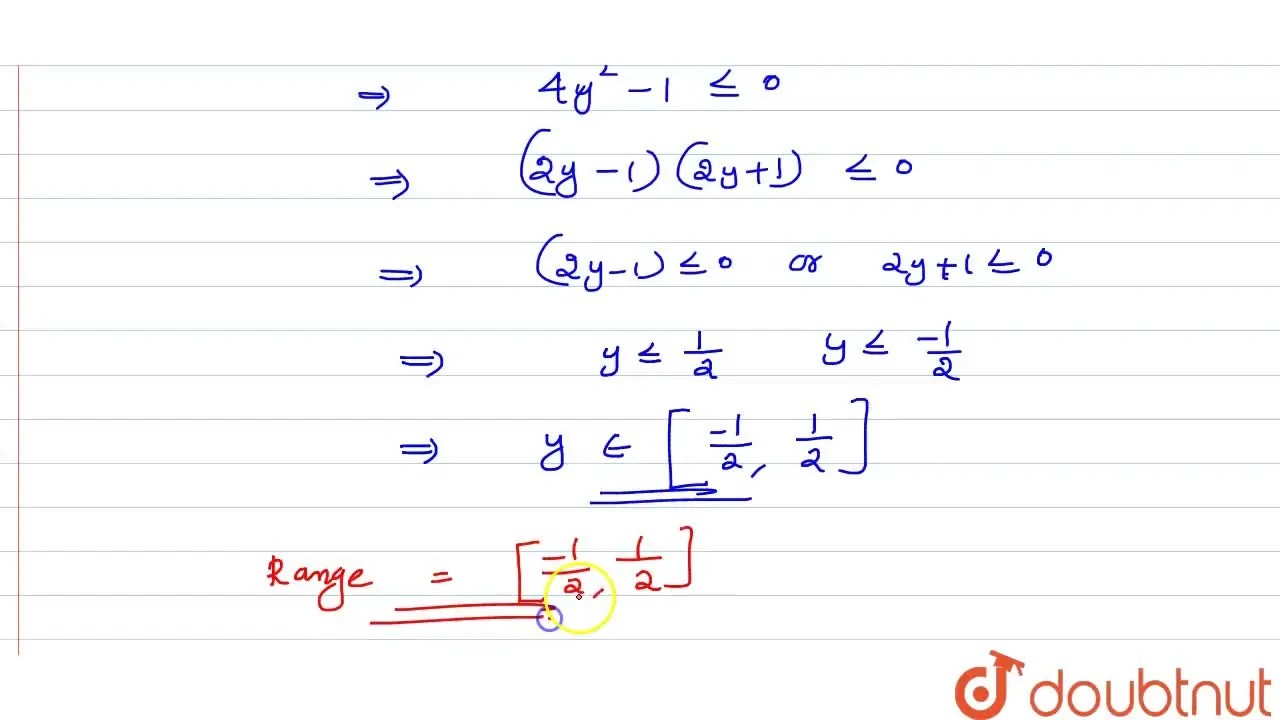 ⇒ 4y² - 1 ≤ 0
⇒ (2y - 1) (2y + 1) ≤ 0
⇒ (2y - 1) ≤ 0 or 2y + 1 ≤ 0
⇒ y ≤ 1/2 y ≤ -1/2
⇒ y ∈ [-1/2, 1/2]
Range = [-1/2, 1/2]
doubtnut